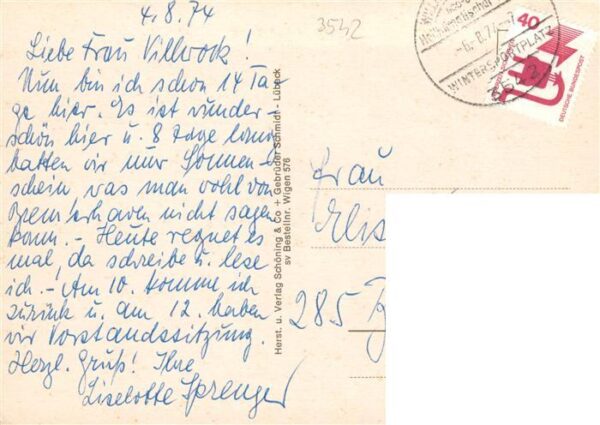 4.8.74
Liebe Frau Villwock!
Nun bin ich schon 14 Ta-
ge hier. Es ist wunder-
schön hier u. 8 Tage lang
hatten wir nur Sonnen-
schein was man wohl von
Bremerhaven nicht sagen
kann. - Heute regnet es
mal, da schreibe u. lese
ich. - Am 10. komme ich
zurück u. am 12. haben
wir Vorstandssitzung.
Herzl. Gruß! Ihre
Liselotte Sprenger
Herst. u. Verlag Schöning & Co + Gebrüder Schmidt - Lübeck
sv Bestellnr. Wigen 576
3542
-6.8.74-7
WINTERSPORTPLATZ
3542
40
DEUTSCHE BUNDESPOST
Frau
Elis
285